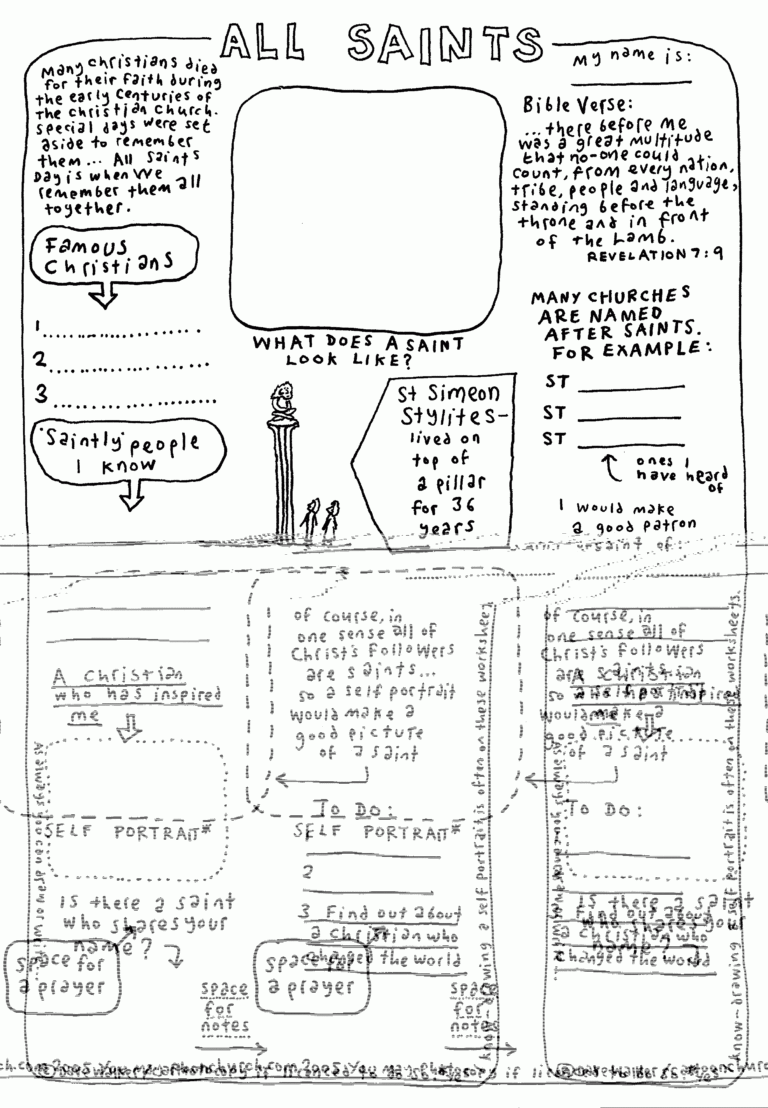 ALL SAINTS
Many Christians died
for their faith during
the early centuries of
the Christian Church.
Special days were set
aside to remember
them... All Saints
Day is when we
remember them all
together.
Famous
Christians
1
2
3
'Saintly' people
I know
WHAT DOES A SAINT
LOOK LIKE?
St Simeon
Stylites-
lived on
top of
a pillar
for 36
years
My name is:
Bible Verse:
...there before me
was a great multitude
that no-one could
count, from every nation,
tribe, people and language,
standing before the
throne and in front
of the Lamb.
REVELATION 7:9
MANY CHURCHES
ARE NAMED
AFTER SAINTS.
FOR EXAMPLE:
ST
ST
ST
ones I
have heard
of
I would make
a good patron
saint of:
A Christian
who has inspired
me
SELF PORTRAIT*
Is there a saint
who shares your
name?
space for
a prayer
space
for
notes
of course, in
one sense all of
Christ's followers
are saints...
so a self portrait
would make a
good picture
of a saint
TO DO:
SELF PORTRAIT*
2
3 Find out about
a Christian who
changed the world
space for
a prayer
space
for
notes
know-drawing a self portrait is often on these worksheets
of course, in
one sense all of
Christ's followers
are saints...
so a self portrait
would make a
good picture
of a saint
TO DO:
Is there a saint
who shares your
name?
Find out about
a Christian who
changed the world
know-drawing a self portrait is often on these worksheets.